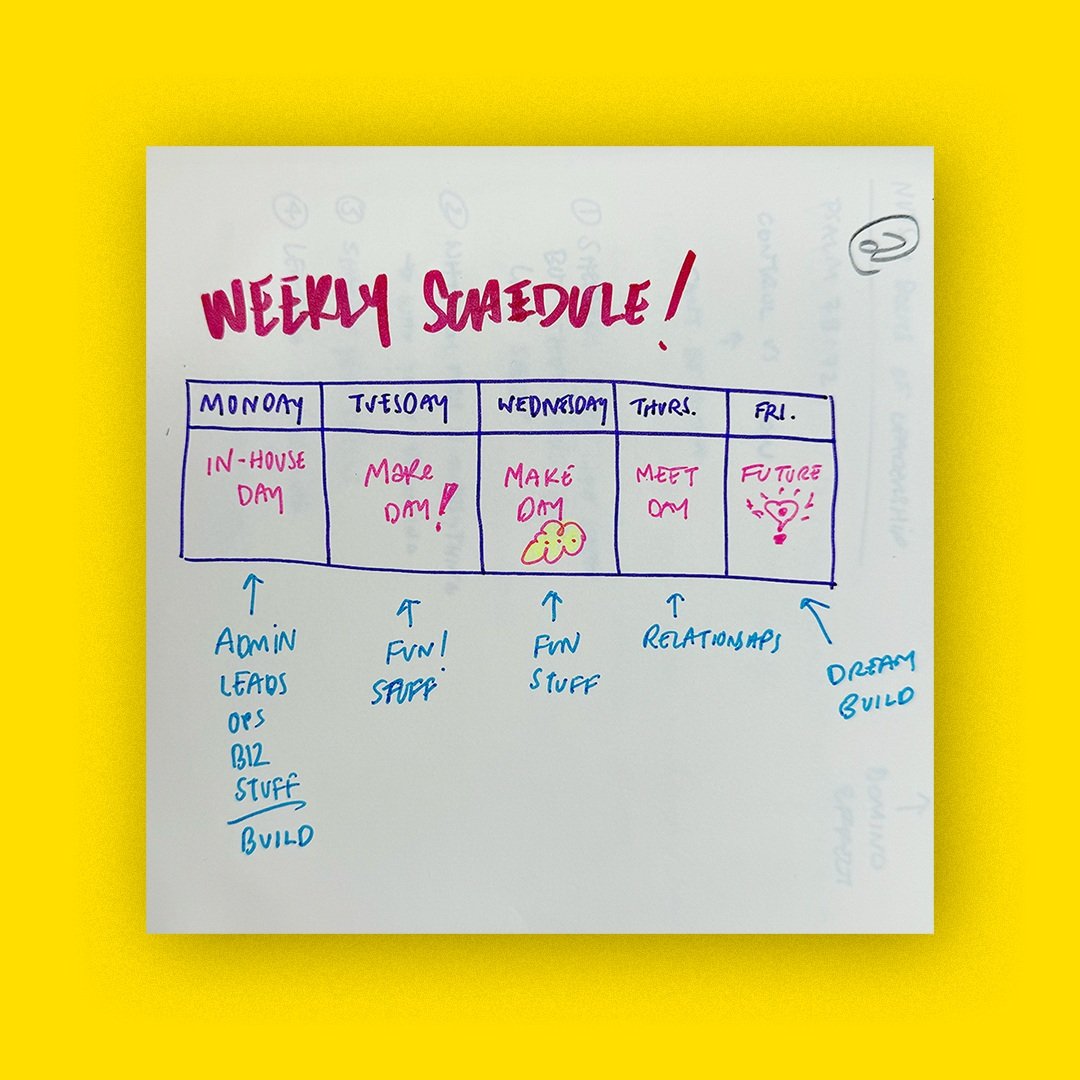 WEEKLY SCHEDULE!
MONDAY TUESDAY WEDNESDAY THURS. FRI.
IN-HOUSE DAY
MAKE DAY!
MAKE DAY
MEET DAY
FUTURE
ADMIN
LEADS
OPS
BIZ
STUFF
BUILD
FUN!
STUFF
FUN
STUFF
RELATIONSHIPS
DREAM
BUILD